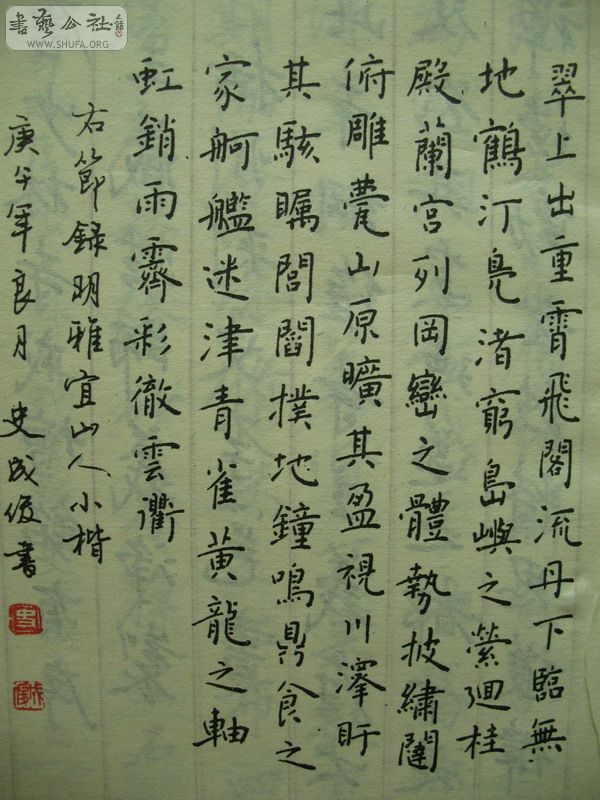 翠上出重霄飛閣流丹下臨無
地鶴汀鳧渚窮島嶼之縈迴桂
殿蘭宮列岡巒之體勢披繡闥
俯雕甍山原曠其盈視川澤盱
其駭矚閭閻撲地鐘鳴鼎食之
家舸艦迷津青雀黃龍之軸
虹銷雨霽彩徹雲衢
右節錄明雅宜山人小楷
庚午年良月 史成俊書
書藝公社
WWW.SHUFA.ORG